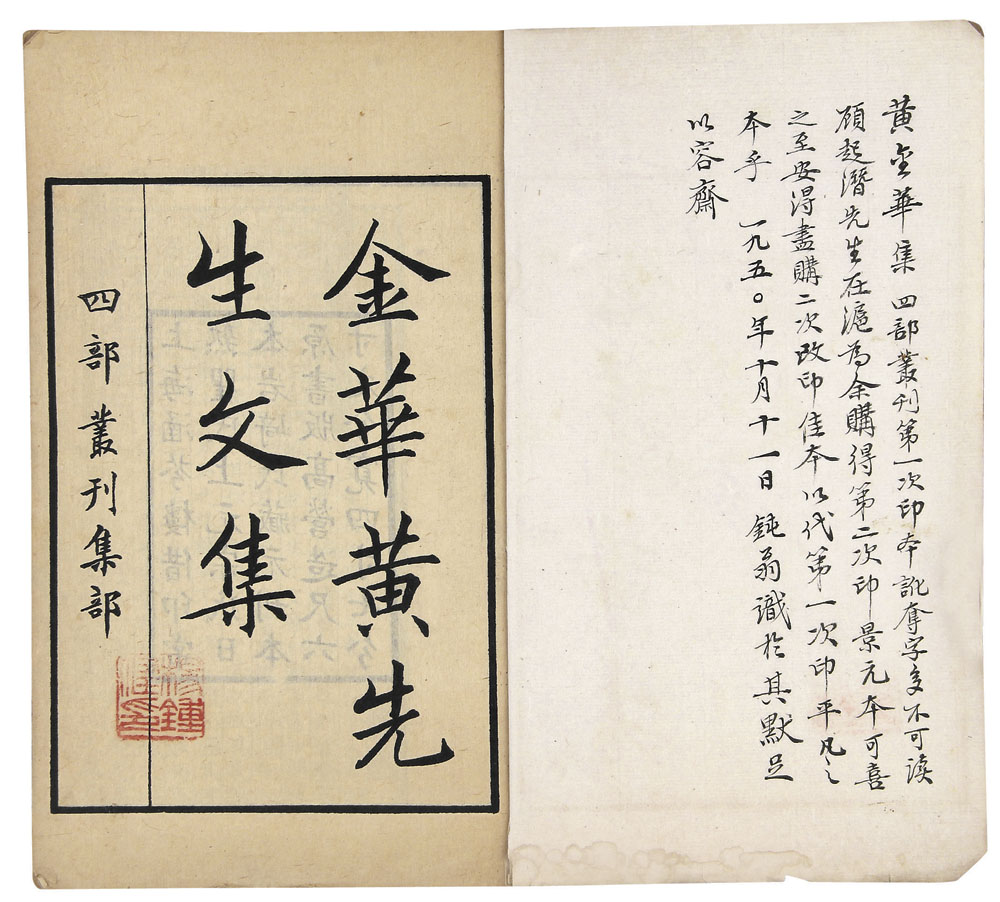 黄金華集 四部叢刊第一次印本訛奪字多不可讀
顧起潛先生在滬為余購得第二次印景元本可喜
之至安得盡購二次改印佳本以代第一次印平凡之
本乎 一九五〇年十月十一日 鈍翁識於其默足
以容齋
金華黄先
生文集
四部叢刊集部